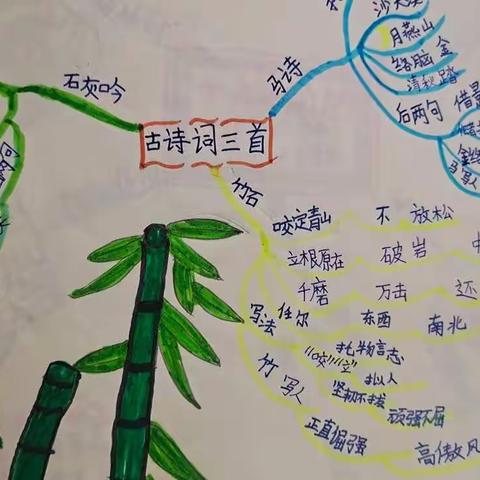 古诗词三首
石灰吟
马诗
月燕山
络脑 金
清秋踏
后两句 借景
竹石
咬定青山 不 放松
立根原在 破岩 中
千磨 万击 还
任尔 东西 南北
写法 托物言志
"咬""立" 拟人
竹 写人 坚韧不拔
顽强不屈
正直倔强 高傲风